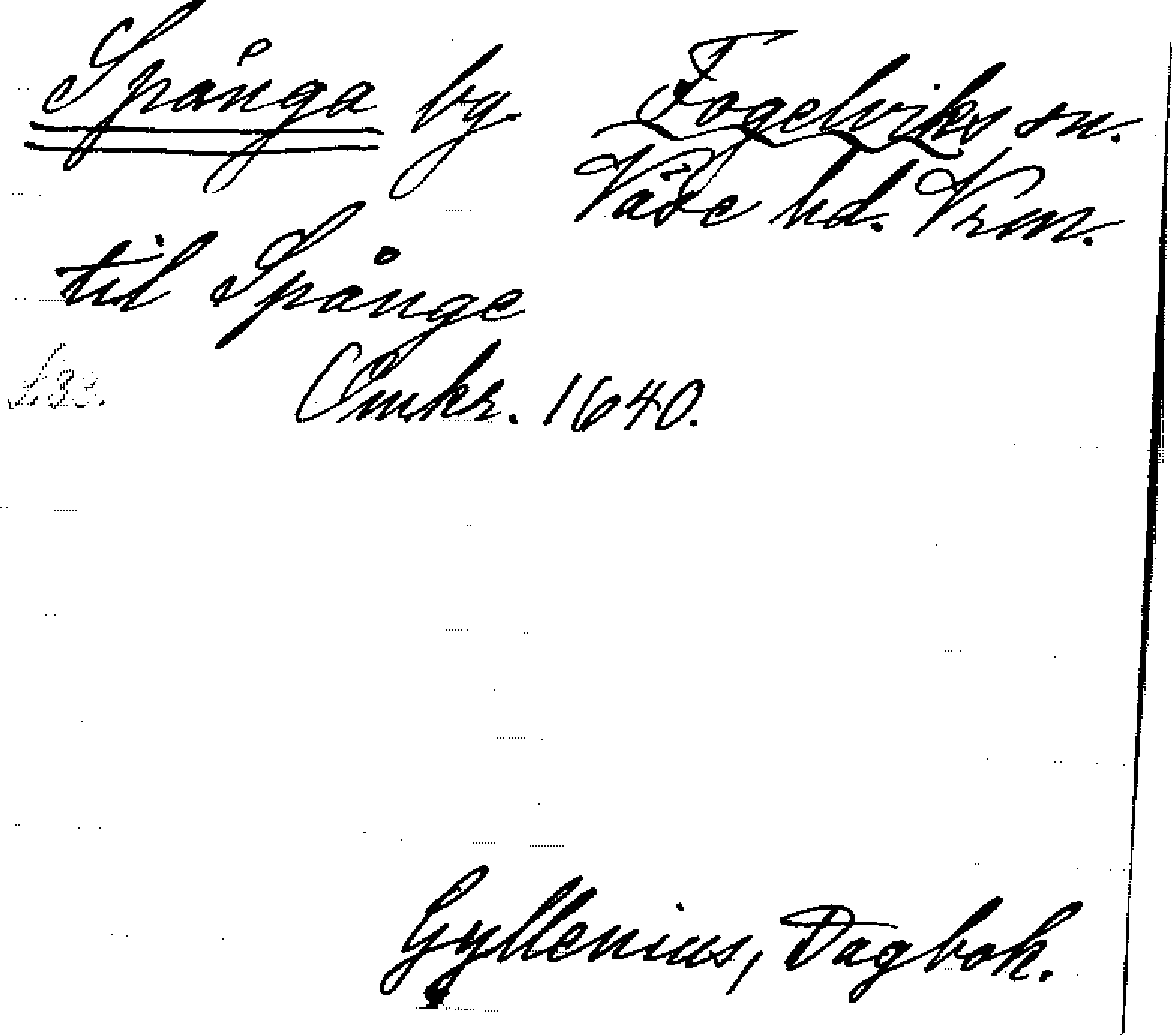 Spånga by. Fogelviks sn.
Väse hd. Vrm.
til Spånge
Omkr. 1640.
Gyllenius, Dagbok.